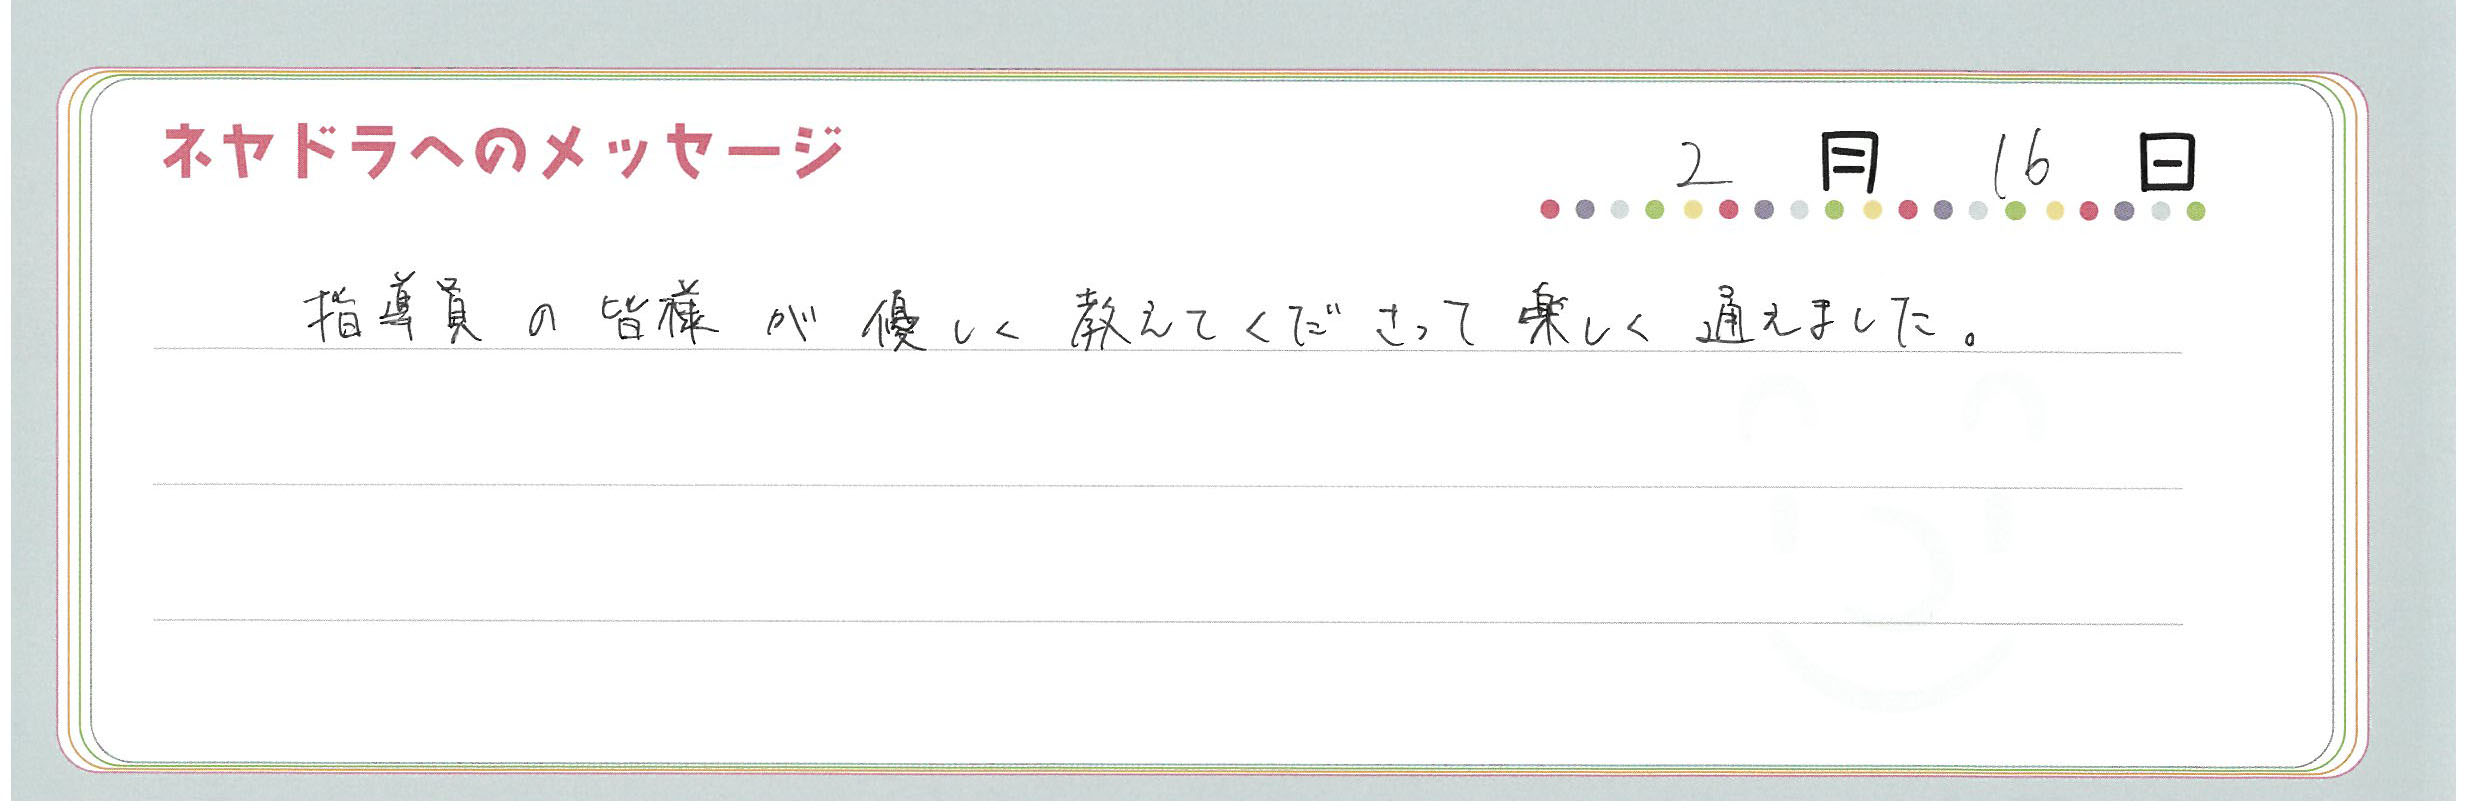 ネヤドラへのメッセージ
2月16日
指導員の皆様が優しく教えてくださって楽しく通えました。